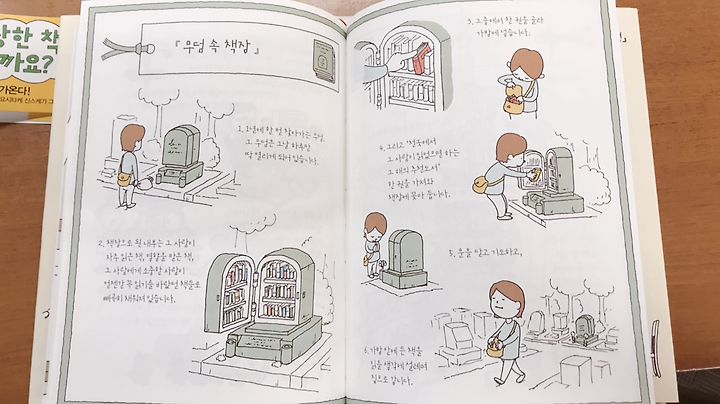 상한 책
까요?
가온다!
요시타케 신스케가 그
『무덤 속 책장』
1. 1년에 한 번 찾아가는 무덤.
그 무덤은 그날 하루만
딱 열리게 되어 있습니다.
2. 책장으로 된 내부는 그 사람이
자주 읽은 책, 영향을 받은 책,
그 사람에게 소중한 사람이
언젠간 꼭 읽기를 바랐던 책들로
빼곡히 채워져 있습니다.
3. 그중에서 한 권을 골라
가방에 넣습니다.
4. 그리고 "천국에서
그 사람이 읽었으면 하는
그 해의 추천도서"
한 권을 가져와
책장에 꽂아 줍니다.
5. 문을 닫고 기도하고,
6. 가방 안에 든 책을
읽을 생각에 설레며
집으로 갑니다.